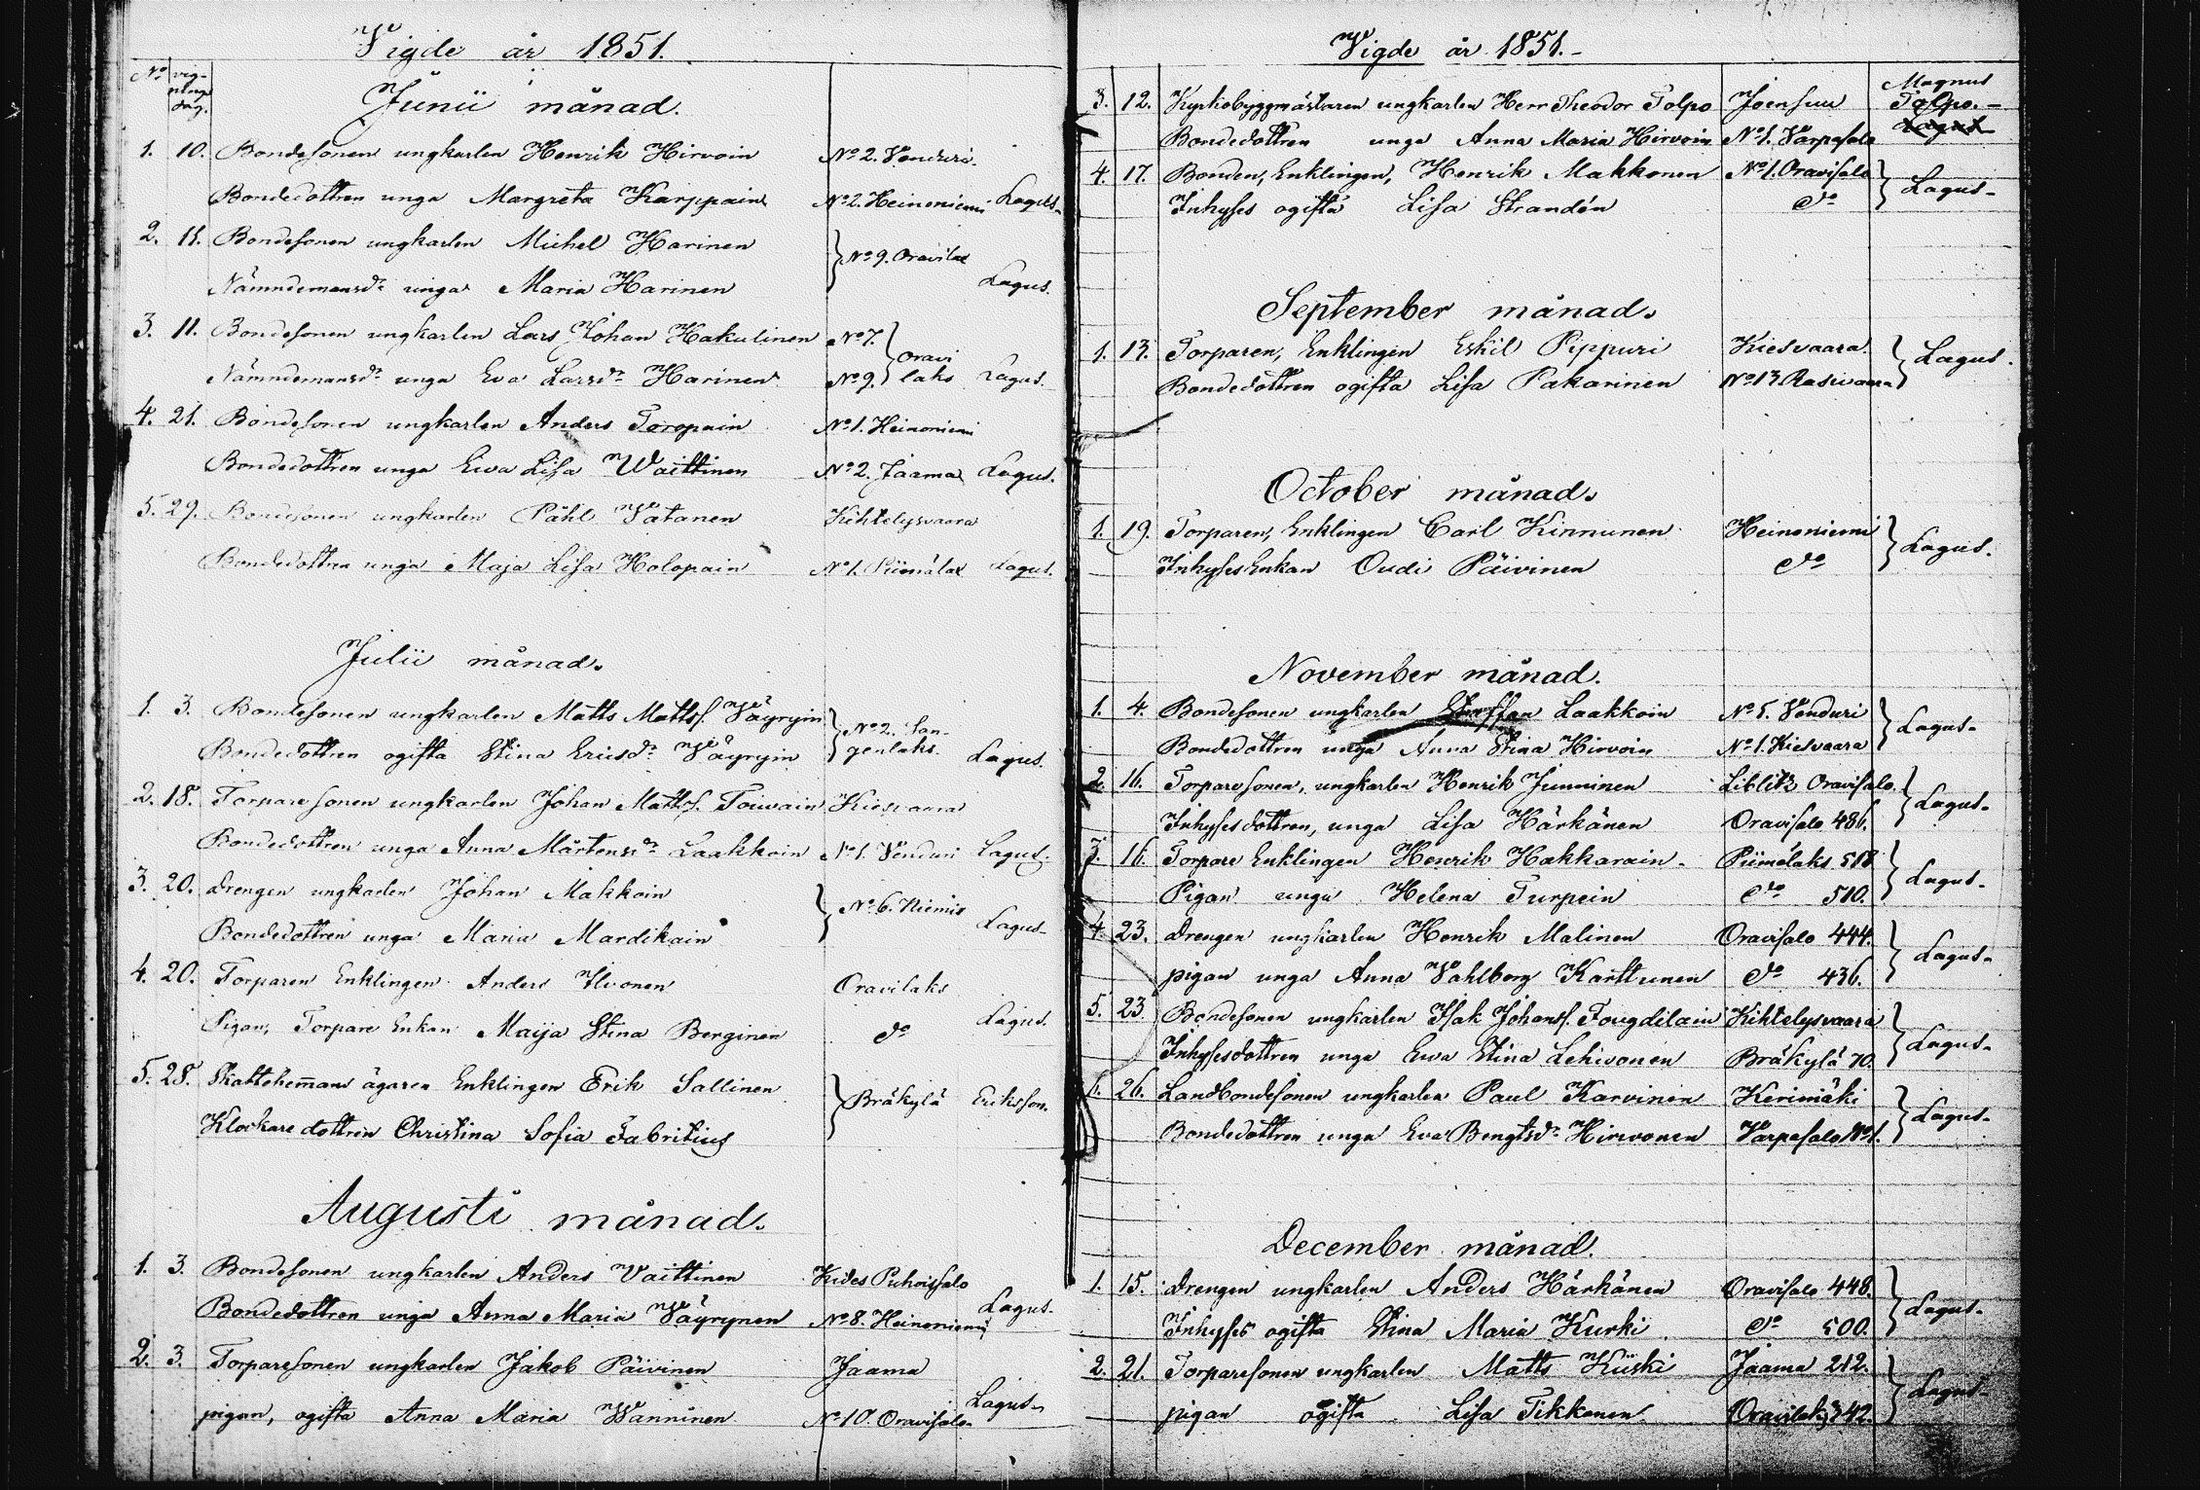 Vigde år 1851.
No vig-
nings
dag.
Junii månad.
1. 10. Bondesonen ungkarlen Henrik Hirvoin No 2. Venduri.
Bondedottren unga Margreta Karppain No 2. Heinoniemi Lagus.
2. 11. Bondesonen ungkarlen Michel Harinen No 9. Oravilax
Nämndemansdr unga Maria Harinen Lagus.
3. 11. Bondesonen ungkarlen Lars Johan Hakulinen No 7. Oravi
Nämndemansdr unga Eva Larsdr Harinen No 9. laks Lagus.
4. 21. Bondesonen ungkarlen Anders Toropain No 1. Heinoniemi
Bondedottren unga Ewa Lisa Waittinen No 2. Jaama Lagus.
5. 29. Bondesonen ungkarlen Påhl Vatanen Kihtelysvaara
Bondedottren unga Maja Lisa Holopain No 1. Piimälax Lagus.
Julii månad.
1. 3. Bondesonen ungkarlen Matts Mattsf. Väyryin No 2. San-
Bondedottren ogifta Stina Ericsdr Väyryin genlaks. Lagus.
2. 18. Torparesonen ungkarlen Johan Mattsf. Toivain Kiesvaara
Bondedottren unga Anna Mårtensdr Laakkoin No 1. Venduri Lagus.
3. 20. Drengen ungkarlen Johan Makkoin
Bondedottren unga Maria Mardikain No 6. Niemis Lagus.
4. 20. Torparen Enklingen Anders Ilvonen Oravilaks
Pigan, Torpare Enkan Maija Stina Berginen do Lagus.
5. 28. Skattehemmans ägaren Enklingen Erik Sallinen
Klockare dottren Christina Sofia Fabritius Bräkylä Eriksson.
Augusti månad.
1. 3. Bondesonen ungkarlen Anders Vaittinen Kides Puhoissalo
Bondedottren unga Anna Maria Väyrynen No 8. Heinoniemi Lagus.
2. 3. Torparesonen ungkarlen Jakob Päivinen Jaama
pigan, ogifta Anna Maria Wanninen No 10. Oravisalo Lagus.
Vigde år 1851.
3. 12. Kyrkobyggmästaren ungkarlen Herr Theodor Tolpo Joensuu Magnus Tolpo.
Bondedottren unga Anna Maria Hirvoin No 1. Varpasalo
4. 17. Bonden, Enklingen, Henrik Makkonen No 1. Oravisalo
Inhyses ogifta Lisa Strandén do Lagus.
September månad.
1. 13. Torparen, Enklingen Eskil Pippuri Kiesvaara.
Bondedottren ogifta Lisa Pakarinen No 13. Rasivaara Lagus.
October månad.
1. 19. Torparen, Enklingen Carl Kinnunen Heinoniemi
Inhyses Enkan Oudi Päivinen do Lagus.
November månad.
1. 4. Bondesonen ungkarlen Staffan Laakkoin No 5. Venduri
Bondedottren unga Anna Stina Hirvoin No 1. Kiesvaara Lagus.
2. 16. Torparesonen, ungkarlen Henrik Junninen Liblitz Oravisalo.
Inhysesdottren, unga Lisa Härkänen Oravisalo 486. Lagus.
3. 16. Torpare Enklingen Henrik Hakkarain Piimälaks 518
Pigan unga Helena Turpein do 510. Lagus.
4. 23. Drengen ungkarlen Henrik Malinen Oravisalo 444.
pigan unga Anna Vahlborg Karttunen do 436. Lagus.
5. 23. Bondesonen ungkarlen Isak Johansf. Fougdilain Kihtelysvaara
Inhysesdottren unga Ewa Stina Lehivonen Bräkylä 70. Lagus.
6. 26. Landbondesonen ungkarlen Paul Karvinen Kerimäki
Bondedottren unga Eva Bengtsdr Hirwonen Varpasalo No 1. Lagus.
December månad.
1. 15. Drengen ungkarlen Anders Härkänen Oravisalo 448.
Inhyses ogifta Stina Maria Kurki do 500. Lagus.
2. 21. Torparesonen ungkarlen Matts Kiiski Jaama 212.
pigan ogifta Lisa Tikkonen Oravilaks 342. Lagus.